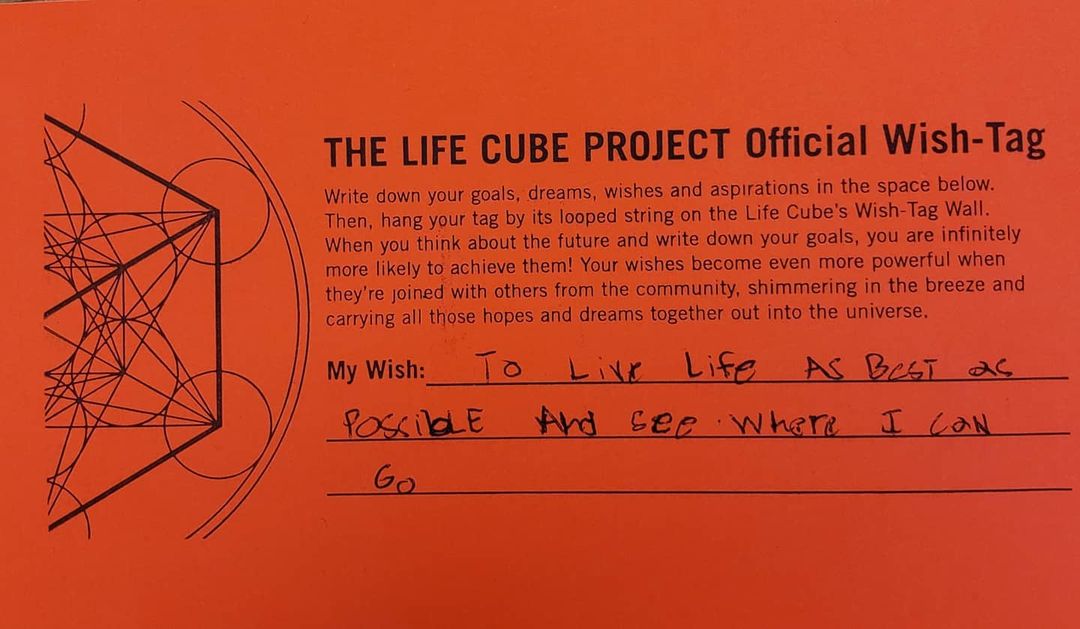 THE LIFE CUBE PROJECT Official Wish-Tag
Write down your goals, dreams, wishes and aspirations in the space below.
Then, hang your tag by its looped string on the Life Cube's Wish-Tag Wall.
When you think about the future and write down your goals, you are infinitely
more likely to achieve them! Your wishes become even more powerful when
they're joined with others from the community, shimmering in the breeze and
carrying all those hopes and dreams together out into the universe.
My Wish: To Live Life As Best as
Possible And see where I can
Go